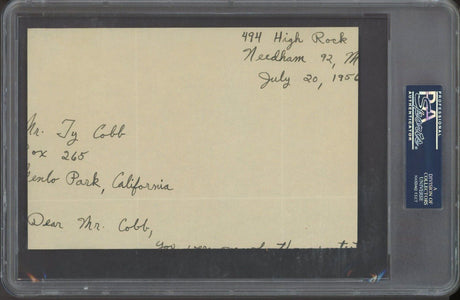 494 High Rock
Needham 92, M
July 20, 1956
Mr. Ty Cobb
ox 265
enlo Park, California
Dear Mr. Cobb,
PSA
PROFESSIONAL
AUTHENTICATOR
A
DIVISION OF
COLLECTORS
UNIVERSE